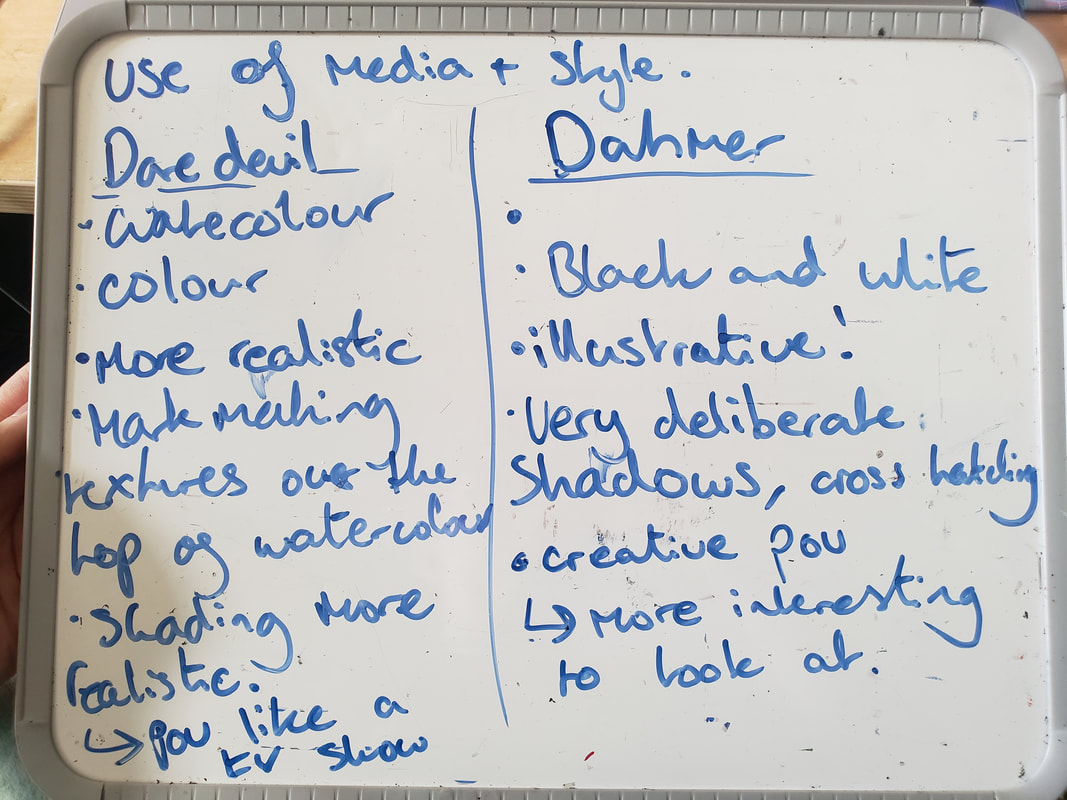 Use of Media + Style.
Daredevil
· Watecolour
· colour
· More realistic
· Mark making
textures over the
top of watercolour
· Shading more
realistic.
↳ pov like a
tv show
Dahmer
·
· Black and white
· illustrative!
· Very deliberate.
Shadows, cross hatching
· creative pov
↳ More interesting
to look at.